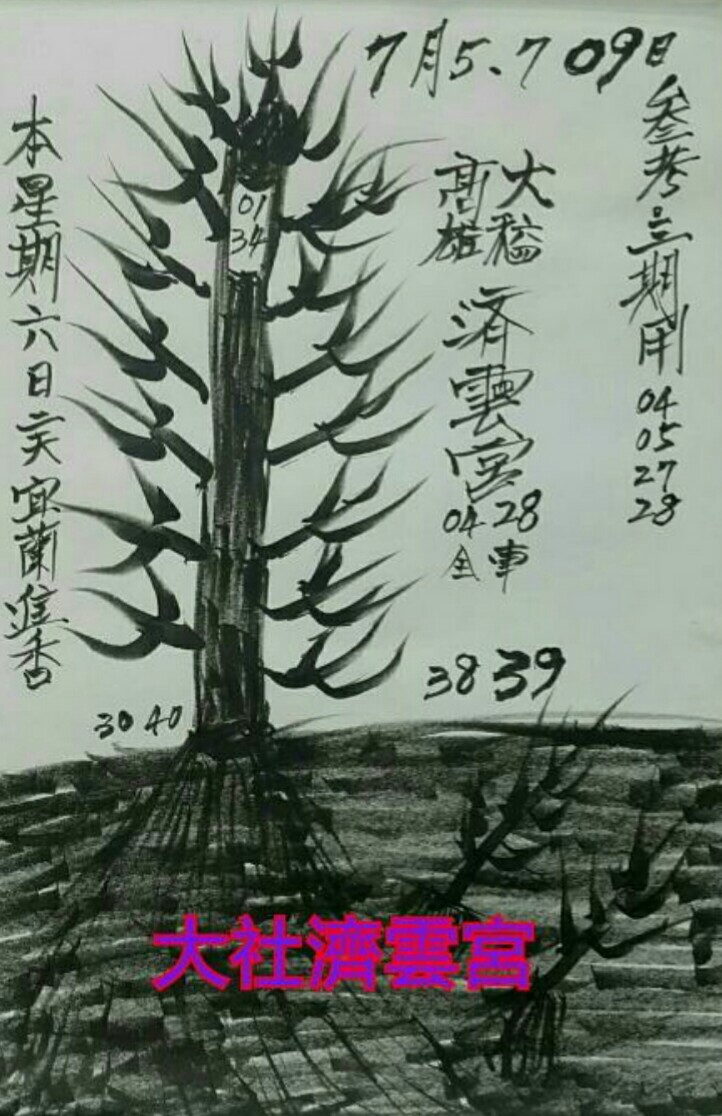 7月5、7 09日
参考三期用
04
05
27
28
高雄
大
済雲宮
04 28
全車
38 39
01
34
本星期六日二天宜蘭進香
30 40
大社濟雲宮